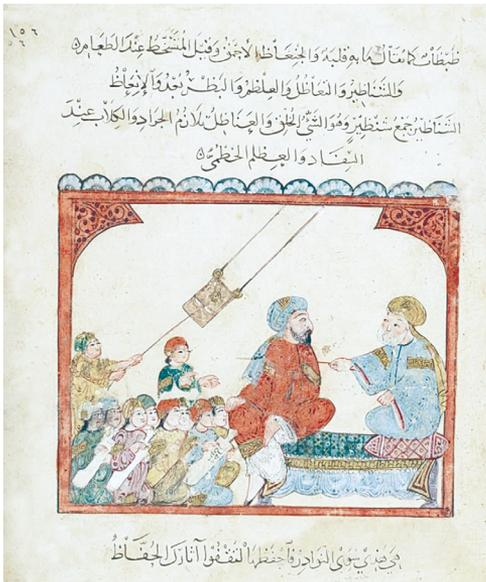 ظبظاب كما يقال ما به قلبة والجنعاظ الاحمق وقيل المتسخط عند الطعام
والشناظير والتعاظل والعظلم والبظر بعد والإنعاظ
الشناظير جمع شنظير وهو السيئ الخلق والتعاظل تلازم الجراد والكلاب عند
السفاد والعظلم الخطمي
هي هذي سوى النوادر فاحفظها لتقفو آثارك الحفاظ